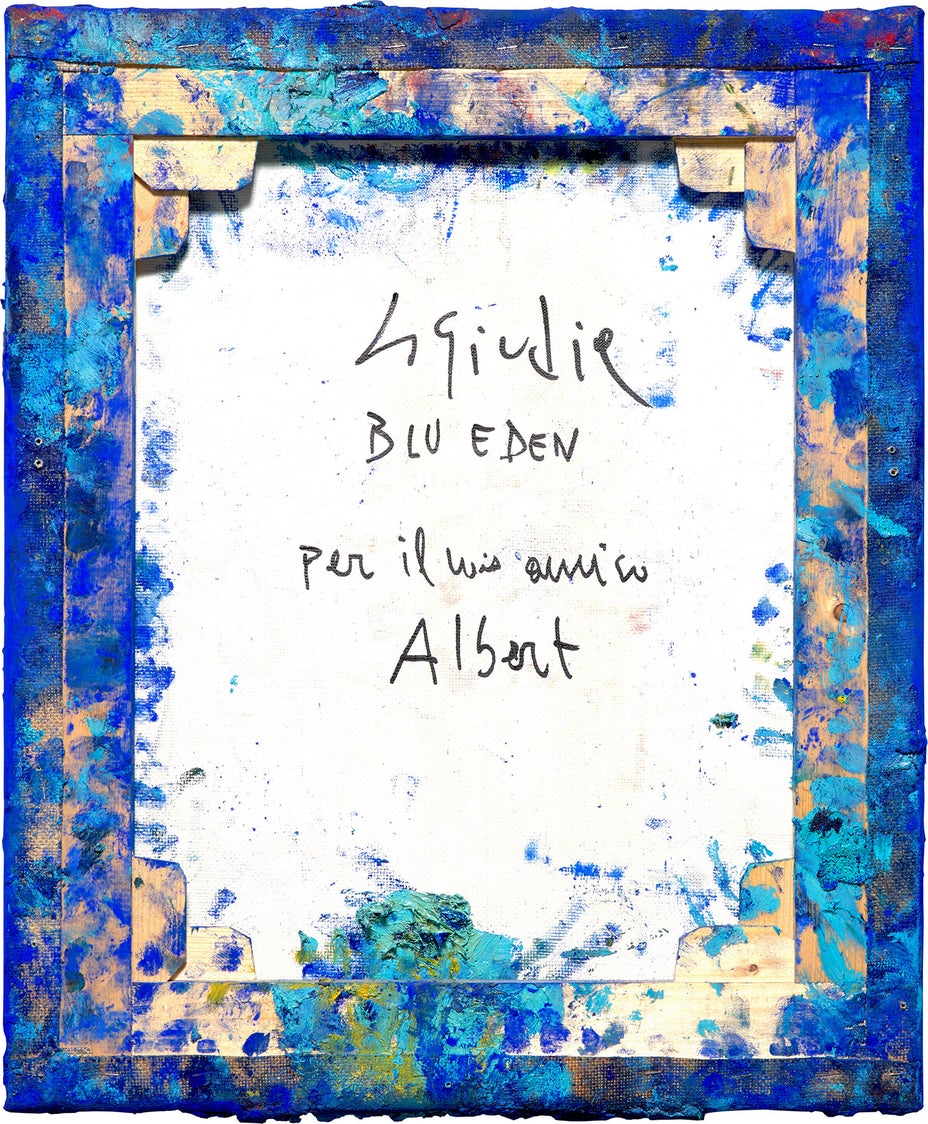 BLU EDEN
per il mio amico
Albert